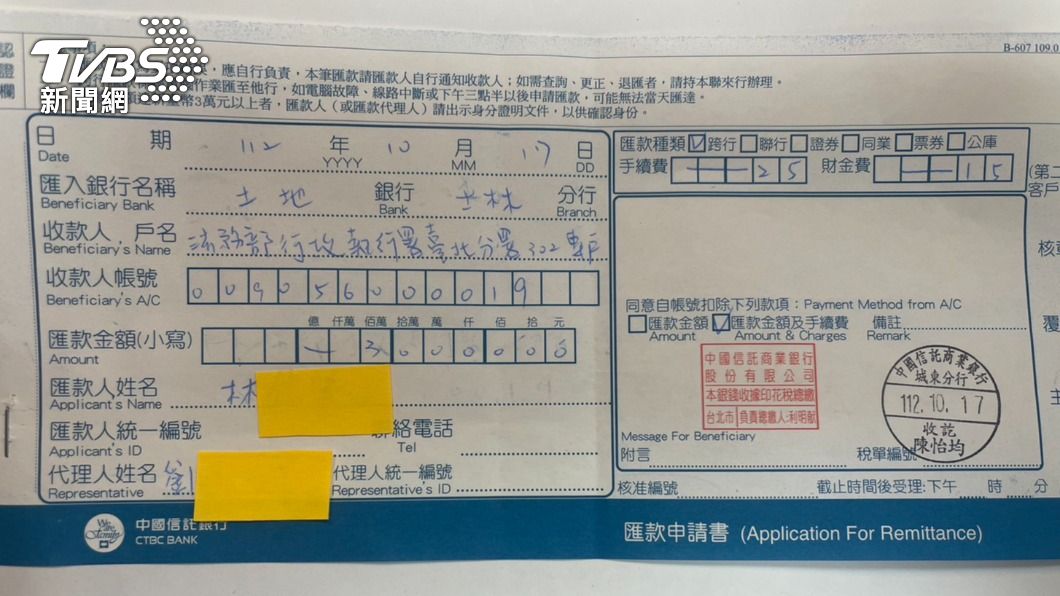 TVBS
新聞網
B-607 109.0
應自行負責，本筆匯款請匯款人自行通知收款人；如需查詢、更正、退匯者，請持本聯來行辦理。
作業匯至他行，如電腦故障、線路中斷或下午三點半以後申請匯款，可能無法當天匯達。
幣3萬元以上者，匯款人（或匯款代理人）請出示身分證明文件，以供確認身份。
證
欄
日期 Date 112 年 YYYY 10 月 MM 17 日 DD
匯入銀行名稱 Beneficiary Bank 土地 銀行 Bank 士林 分行 Branch
收款人戶名 Beneficiary's Name 法務部行政執行署臺北分署302專戶
收款人帳號 Beneficiary's A/C 009056000019
億 仟萬 佰萬 拾萬 萬 仟 佰 拾 元
匯款金額(小寫) Amount 3000000
匯款人姓名 Applicant's Name 林
匯款人統一編號 Applicant's ID 聯絡電話 Tel
代理人姓名 Representative 劉 代理人統一編號 Representative's ID
匯款種類 ☑跨行 □聯行 □證券 □同業 □票券 □公庫
手續費 25 財金費 15
(第二
客戶
同意自帳號扣除下列款項：Payment Method from A/C
□匯款金額 Amount ☑匯款金額及手續費 Amount & Charges 備註 Remark
中國信託商業銀行
股份有限公司
本銀錢收據印花稅總繳
台北市 負責總繳人:利明献
中國信託商業銀行
城東分行
112.10.17
收訖
陳怡均
Message For Beneficiary
附言 稅單編號
核准編號 截止時間後受理:下午 時 分
We are Family
中國信託銀行
CTBC BANK
匯款申請書 (Application For Remittance)